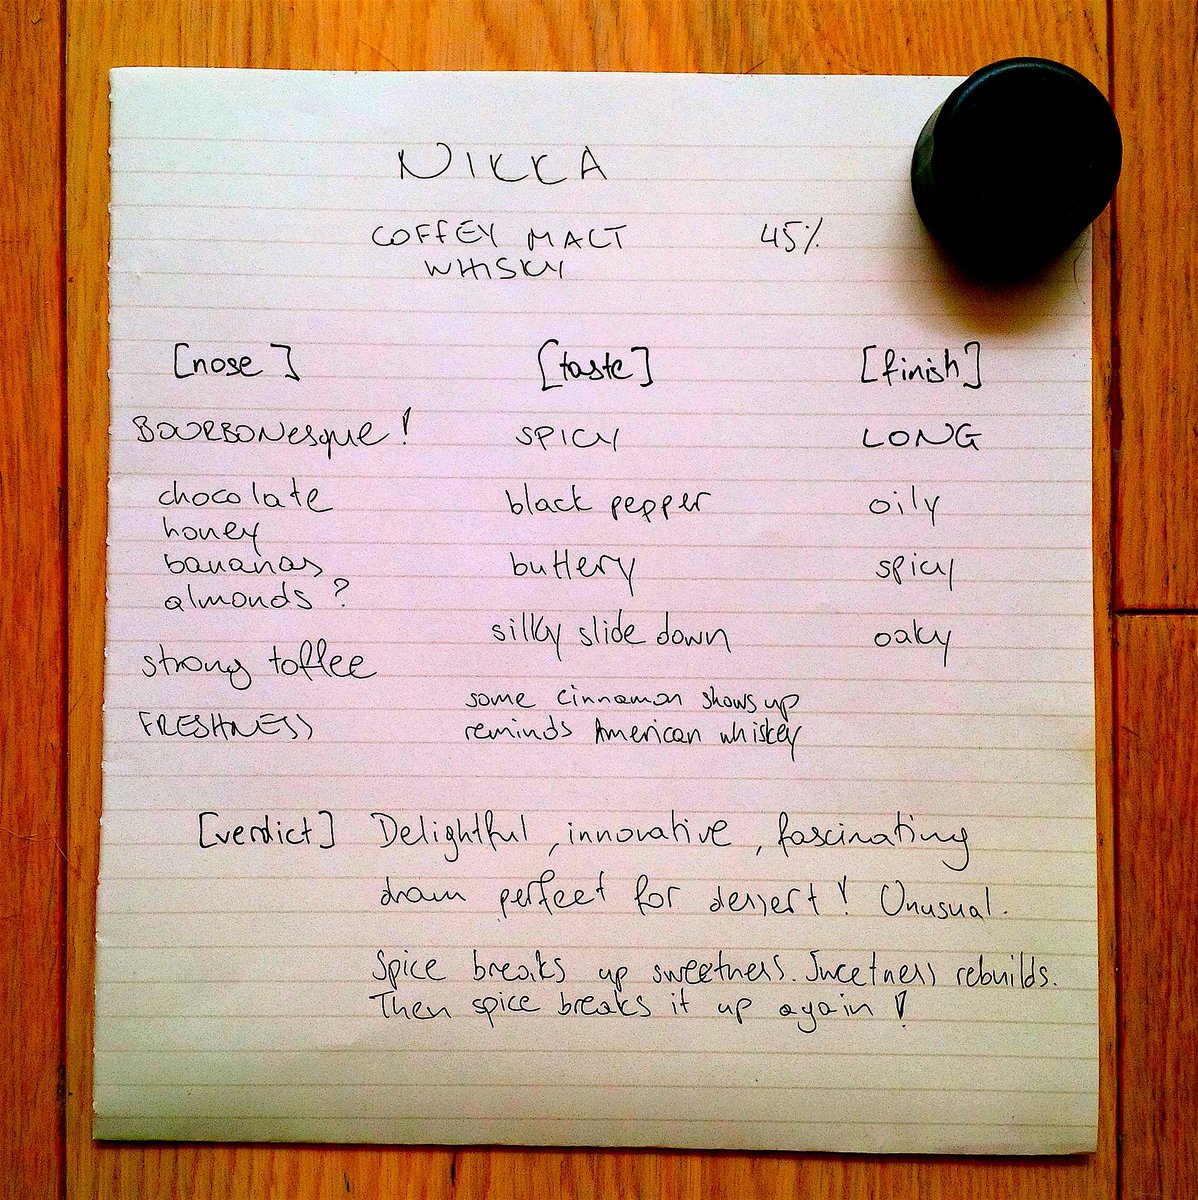 NIKKA
COFFEY MALT 45%
WHISKY
[nose] [taste] [finish]
BOURBONesque! SPICY LONG
chocolate black pepper oily
honey
bananas buttery spicy
almonds?
silky slide down oaky
strong toffee
some cinnamon shows up
FRESHNESS reminds American whiskey
[verdict] Delightful, innovative, fascinating
dram perfect for dessert! Unusual.
Spice breaks up sweetness. Sweetness rebuilds.
Then spice breaks it up again!